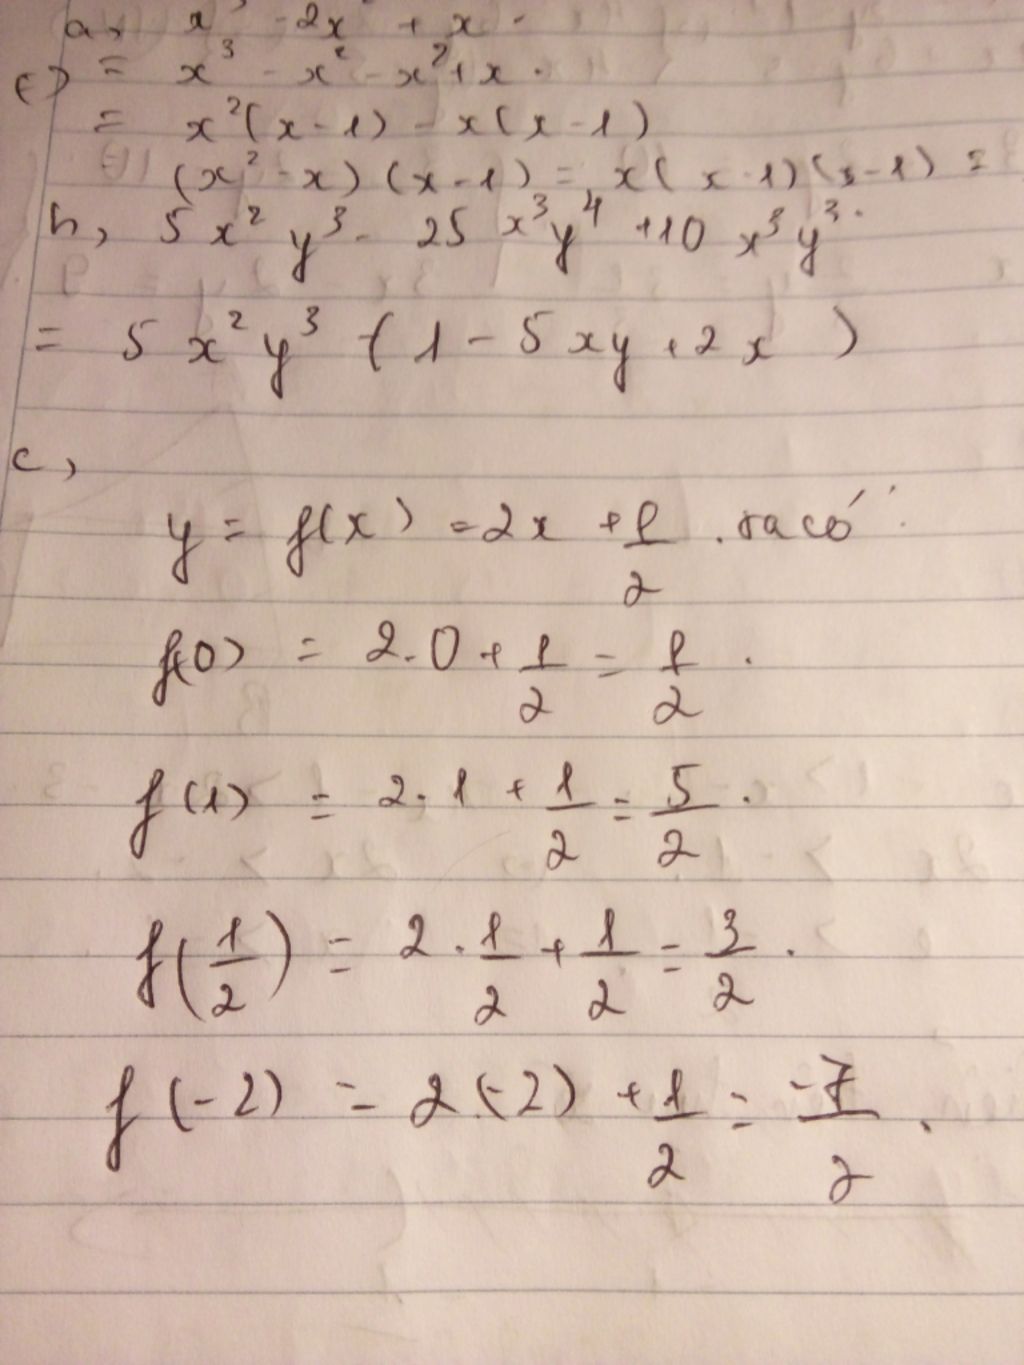 a, x³ - 2x² + x.
c) = x³ - x² - x² + x.
= x²(x-1) - x(x-1)
(x² - x)(x-1) = x(x-1)(x-1) =
b, 5x²y³ - 25x³y⁴ + 10x³y³.
= 5x²y³(1 - 5xy + 2x)
c,
y = f(x) = 2x + 1/2. ta có:
f(0) = 2.0 + 1/2 = 1/2.
f(1) = 2.1 + 1/2 = 5/2.
f(1/2) = 2.1/2 + 1/2 = 3/2.
f(-2) = 2(-2) + 1/2 = -7/2.